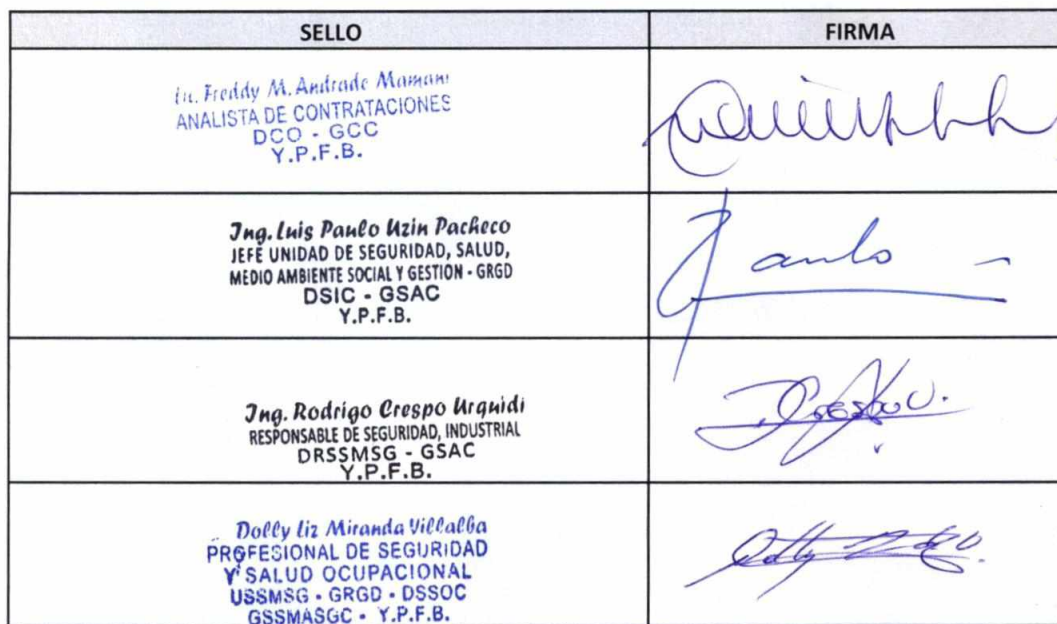 SELLO FIRMA
Lic. Freddy M. Andrade Mamani
ANALISTA DE CONTRATACIONES
DCO - GCC
Y.P.F.B.
Ing. Luis Paulo Uzin Pacheco
JEFE UNIDAD DE SEGURIDAD, SALUD,
MEDIO AMBIENTE SOCIAL Y GESTION - GRGD
DSIC - GSAC
Y.P.F.B.
Paulo
Ing. Rodrigo Crespo Urquidi
RESPONSABLE DE SEGURIDAD, INDUSTRIAL
DRSSMSG - GSAC
Y.P.F.B.
Dolly Liz Miranda Villalba
PROFESIONAL DE SEGURIDAD
Y SALUD OCUPACIONAL
USSMSG - GRGD - DSSOC
GSSMASGC - Y.P.F.B.